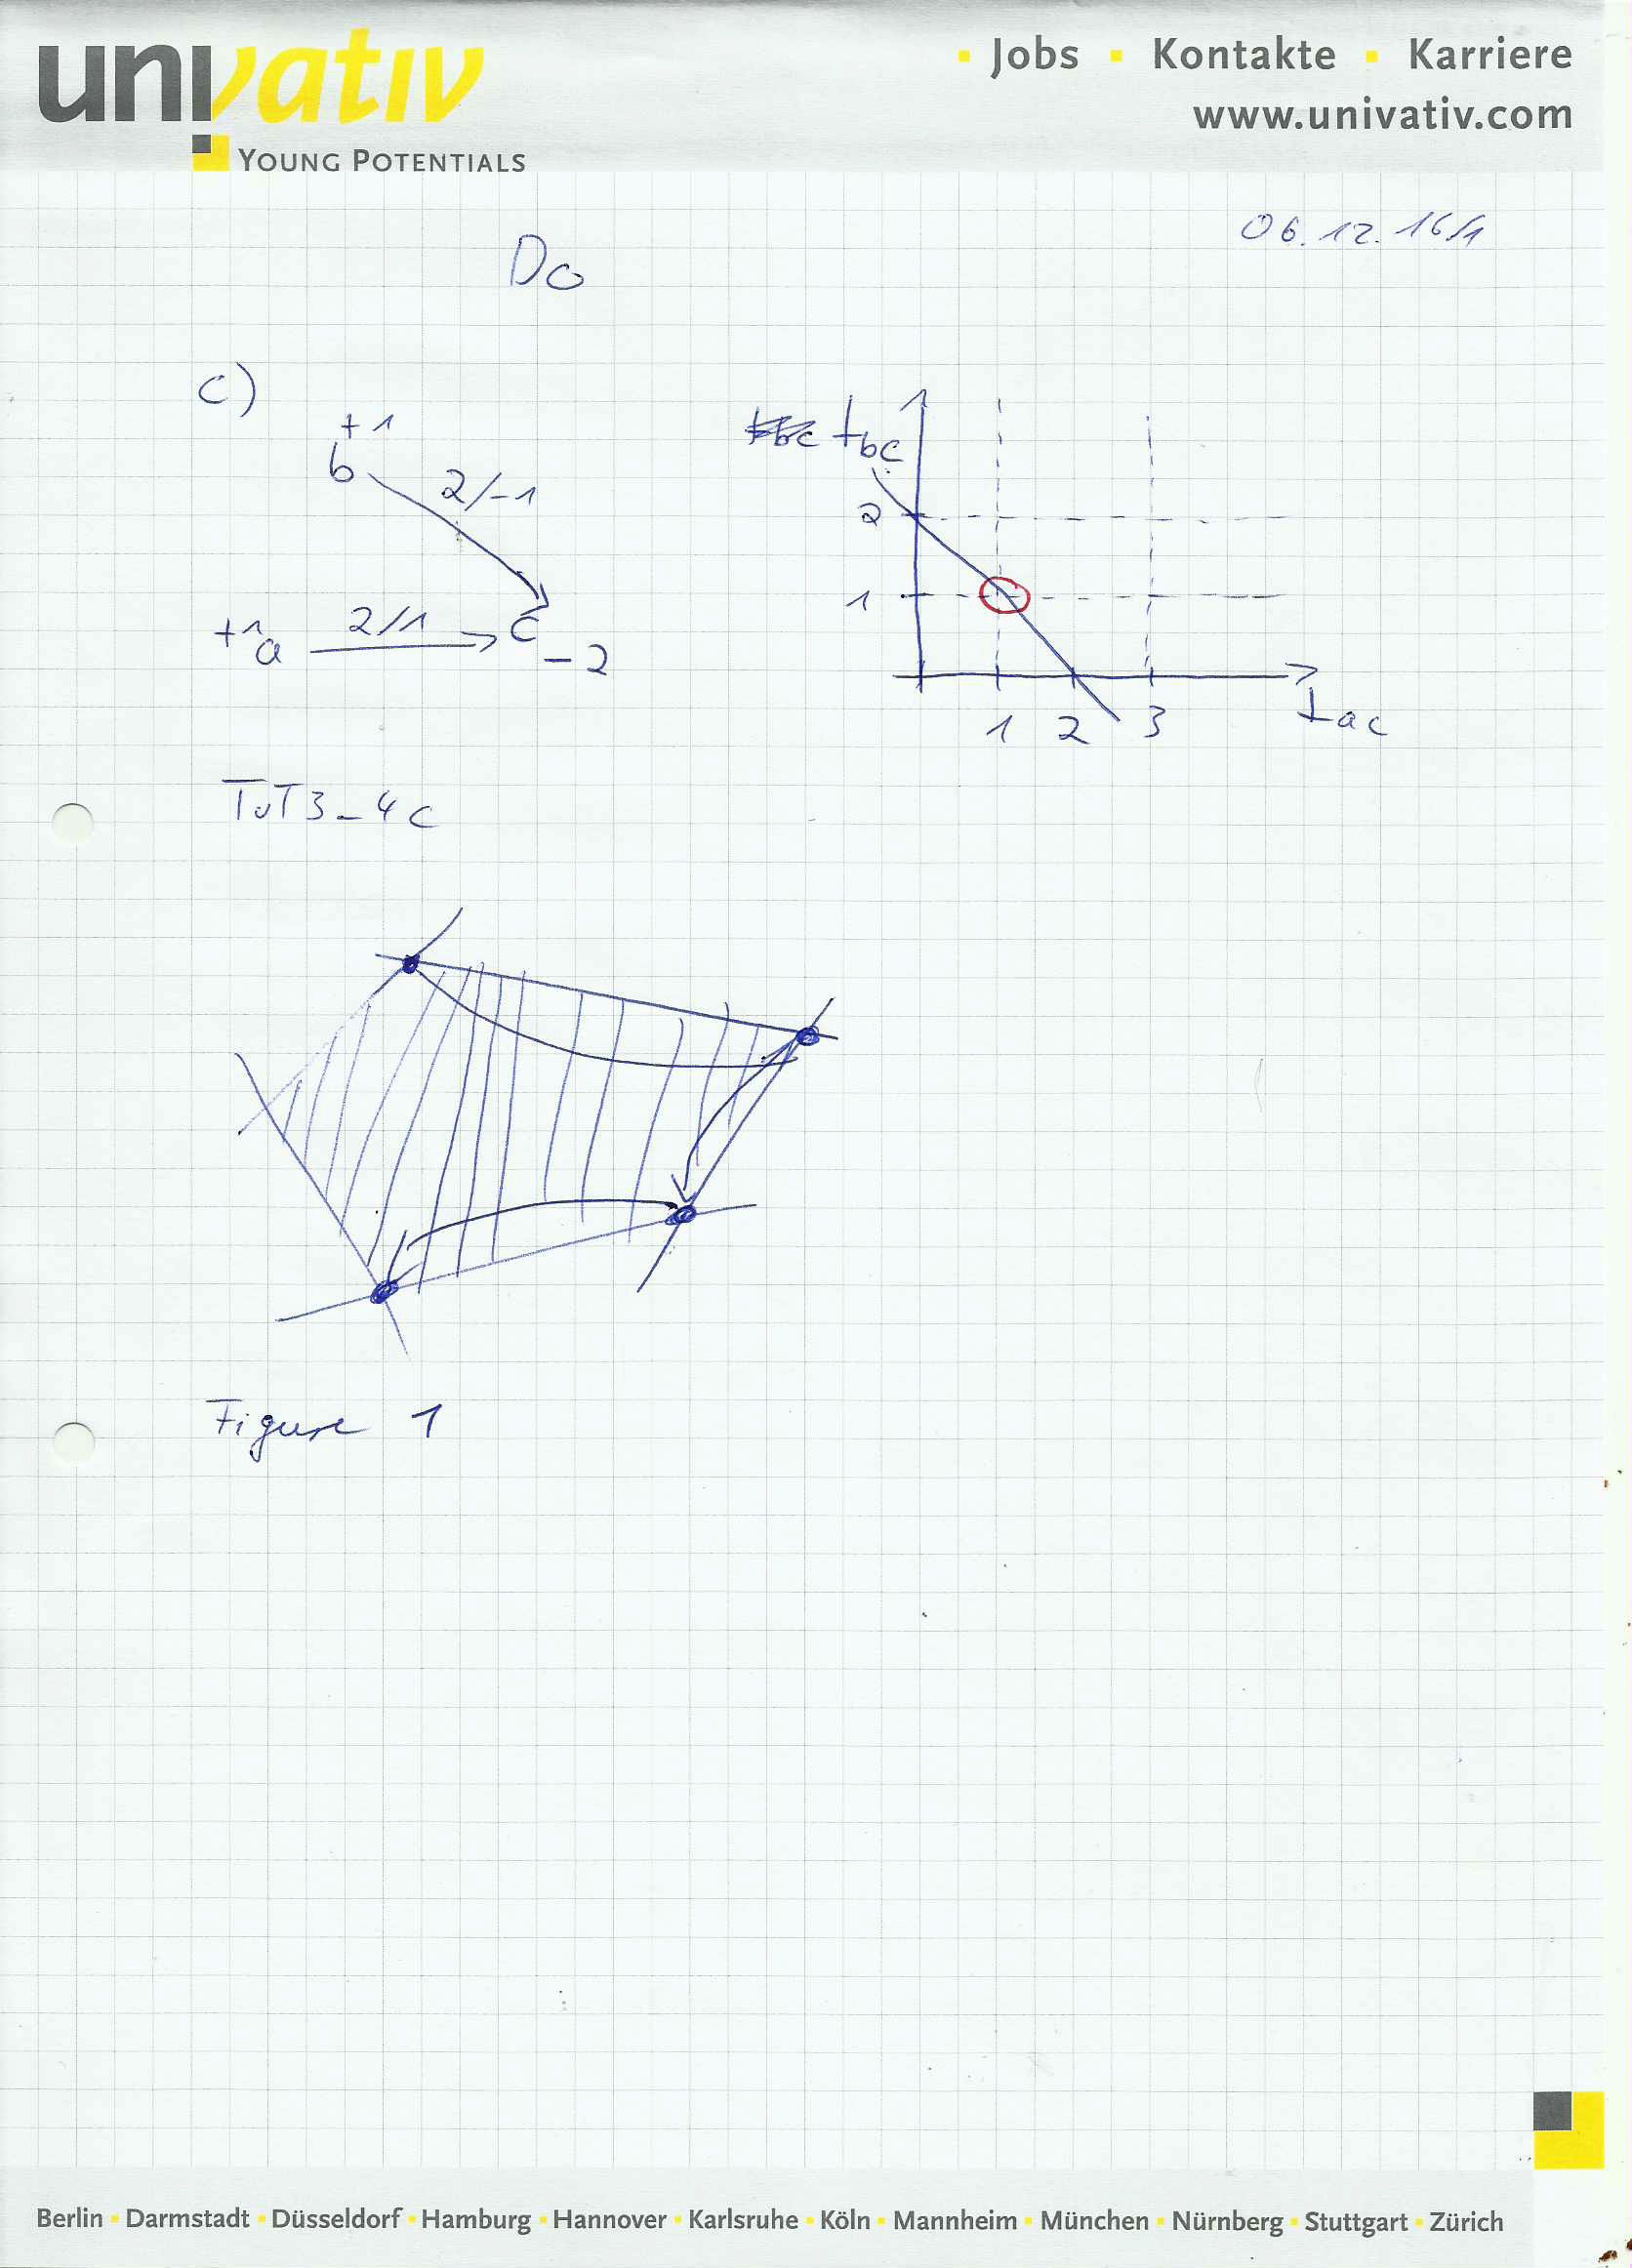 univativ
YOUNG POTENTIALS
Jobs · Kontakte · Karriere
www.univativ.com
06.12.16/1
Do
c)
+1
b
2/-1
+1 a
2/1
c
-2
fbc
2
1
1 2 3
fac
TUT3_4c
Figure 1
Berlin · Darmstadt · Düsseldorf · Hamburg · Hannover · Karlsruhe · Köln · Mannheim · München · Nürnberg · Stuttgart · Zürich